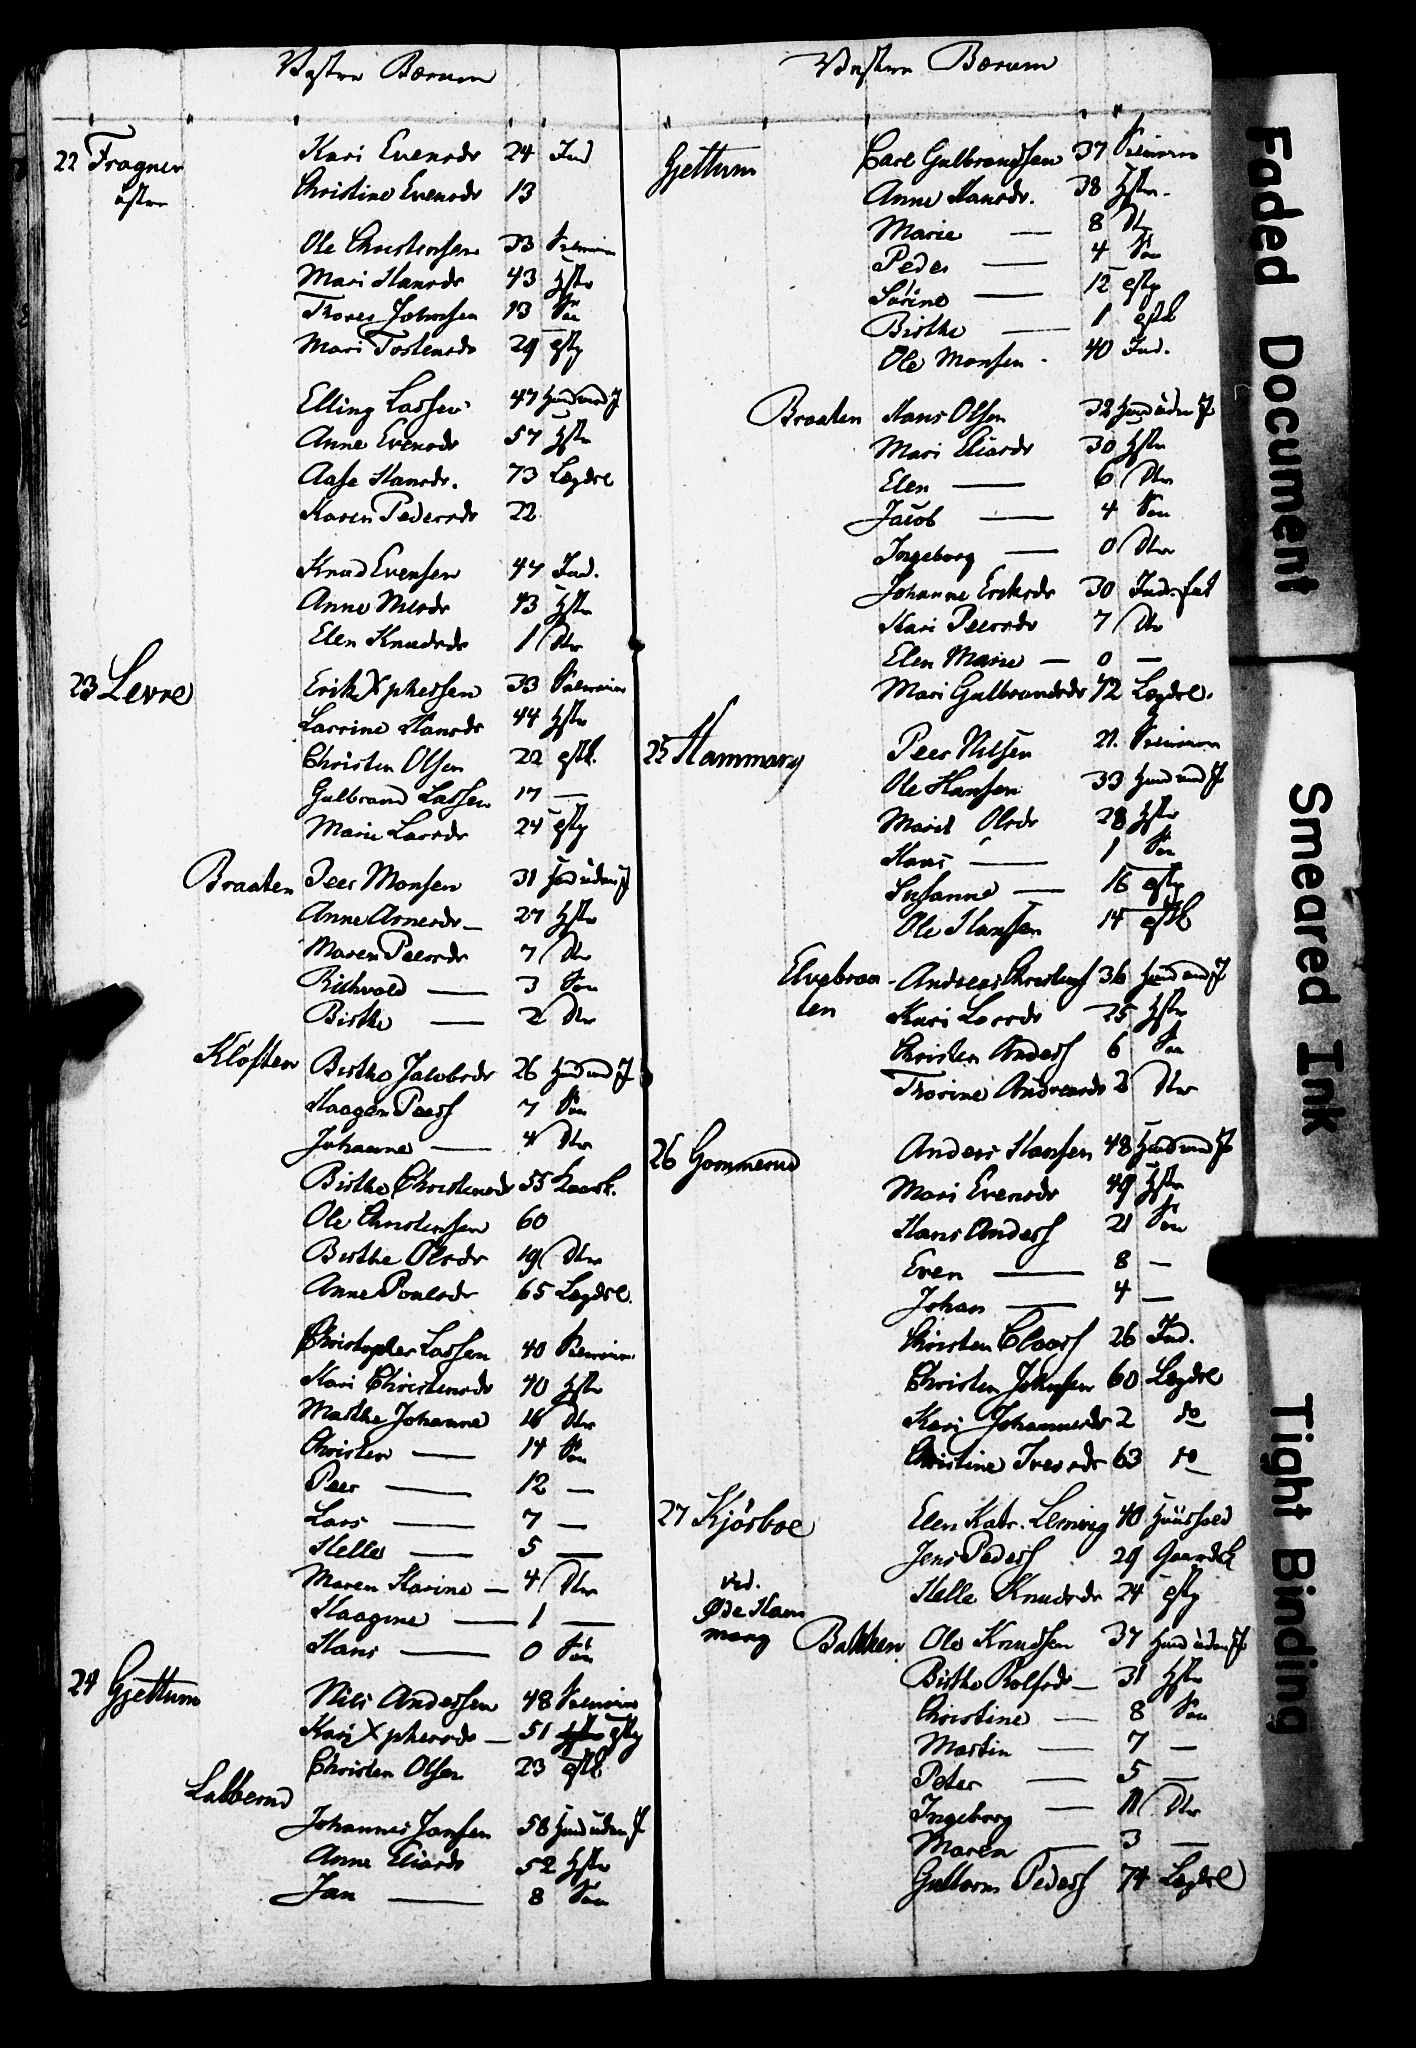 Vestre Bærum
22 Fragner Kari Evensdr 24 Ind
østre Christine Evensdr 13
Ole Christensen 33
Mari Hansdr 43 Hstr
Thores Johnsen 13 Sön
Mari Tostensdr 29 ostp
Elling Larsen 47 Huusmd J
Anne Evensdr 57 Hstr
Aase Hansdr. 73 Lægdsl
Karen Pedersdr 22
Knud Evensen 47 Ind.
Anne Nilsdr 43 Hstr
Elen Knudsdr 1 Dtr
23 Levre Erik Xphersen 33
Larrine Hansdr 44 Hstr
Christen Olsen 22 ostk.
Gulbrand Larsen 17 —
Marie Larsdr 24 ostp
Braaten Peer Monsen 31 Huusd uden J
Anne Arnesdr — 27 Hstr
Maren Peersdr 7 Dtr
— 3 Sön
Birthe — 2 Dtr
Kløften Birthe Jacobsdr 26 Huusmd J
Haagen Peers 7 Sön
Johanne — 4 Dtr
Birthe Christensdr 55
Ole Christensen 60
Birthe Olsdr 19 Dtr
Anne Povelsdr 65 Lægdsl.
Christopher Larsen 40
Kari Christensdr 40 Hstr
Marthe Johanne 16 Dtr
Christen — 14 Sön
Peer — 12 —
Lars — 7 —
Helle — 5 —
Maren Karine — 4 Dtr
Haagine — 1 —
Hans — 0 Sön
24 Gjettum Nils Andersen 48
Kari Xphersdr — 51 ostp
Christen Olsen 23 ostk
Labberud
Johannes Jansen 58 Huusd uden J
Anne Eliasdr 52 Hstr
Jan — 8 Sön
Vestre Bærum
Gjettum Carl Gulbrandsen 37
Anne Hansdr. 38 Hstr.
Marie — 8 Dtr
Peder — 4 Sön
Sørine — 12 ostp
Birthe — 1 ostk
Ole Monsen 40 Ind.
Braaten Hans Olsen 32 Huusd uden J
Mari Eliasdr 30 Hstr
Elen — 6 Dtr
Jacob — 4 Sön
Ingeborg — 0 Dtr
Johanne Eriksdr 30
Kari Peersdr 7 Dtr
Elen Marie — 0 —
Mari Gulbrandsdr 72 Lægdsl.
25 Hammang Peer Nilsen 21.
Ole Hansen 33 Huusmd J
Marit Olsdr 28 Hstr
Hans — 1 Sön
Susanne — 16 ostp
Ole Hansen 14 ostk
Elvebraa- Andreas Christens 36 Huusmd J
ten Kari Larsdr 25 Hstr
Christen Anders 6 Sön
Thorine Andreasdr 2 Dtr
26 Gommerud Anders Hansen 48 Huusmd J
Mari Evensdr 49 Hstr
Hans Anders 21 Sön
Even — 8 —
Johan — 4 —
Christen Claass 26 Ind.
Christen Johnsen 60 Lægdsl
Kari Johannesdr 2 do
Christine Iversdr 63 do
27 Kjørboe Elen Katr. Lemvig 40 Huushold
Jens Peders 29
Helle Knudsdr 24 ostp
ved.
Øde Ham
mang
Bakken Ole Knudsen 37 Huusd uden J
Birthe Rolfsdr — 31 Hstr
Christine — 8 Sön
Martin — 7 —
Peter — 5 —
Ingeborg — 11 Dtr
Maren — 3 —
Guttorm Peders 74 Lægdsl
Faded Document
Smeared Ink
Tight Binding